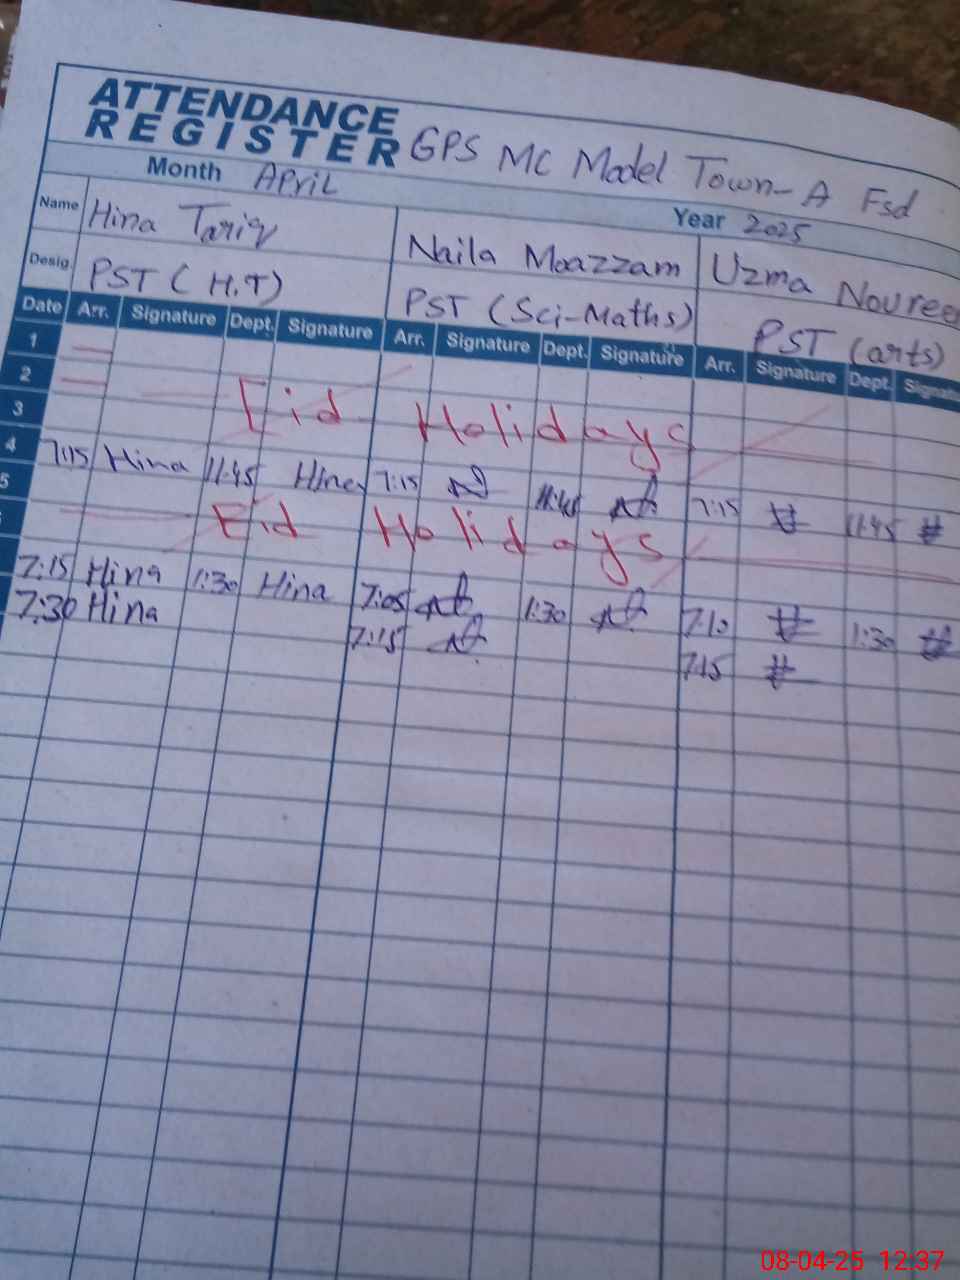 ATTENDANCE
REGISTER GPS MC Model Town-A Fsd
Month April Year 2025
Name Hina Tariq Naila Moazzam Uzma Nouree
Desig. PST (H.T) PST (Sci-Maths) PST (arts)
Date Arr. Signature Dept. Signature Arr. Signature Dept. Signature Arr. Signature Dept. Signat
1
2
3 Eid Holidays
4 7:15 Hina 11:45 Hina 7:15 11:45 7:15 11:45
5 Eid Holidays
7:15 Hina 1:30 Hina 7:05 1:30 7:10 1:30
7:30 Hina 7:15 7:15
08-04-25 12:37